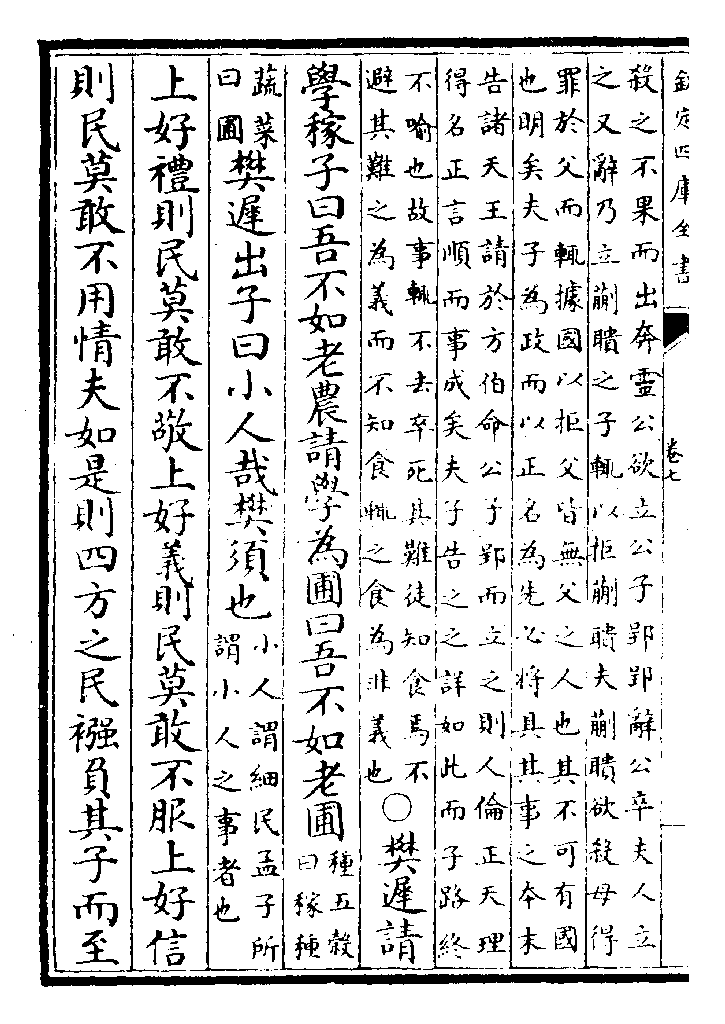 欽定四庫全書
卷七
殺之不果而出奔靈公欲立公子郢郢辭公卒夫人立
之又辭乃立蒯聵之子輒以拒蒯聵夫蒯聵欲殺母得
罪於父而輒據國以拒父皆無父之人也其不可有國
也明矣夫子為政而以正名為先必將具其事之本末
告諸天王請於方伯命公子郢而立之則人倫正天理
得名正言順而事成矣夫子告之之詳如此而子路終
不喻也故事輒不去卒死其難徒知食焉不
避其難之為義而不知食輒之食為非義也○樊遲請
學稼子曰吾不如老農請學為圃曰吾不如老圃種五穀
曰稼種
蔬菜
曰圃樊遲出子曰小人哉樊須也小人謂細民孟子所
謂小人之事者也
上好禮則民莫敢不敬上好義則民莫敢不服上好信
則民莫敢不用情夫如是則四方之民襁負其子而至